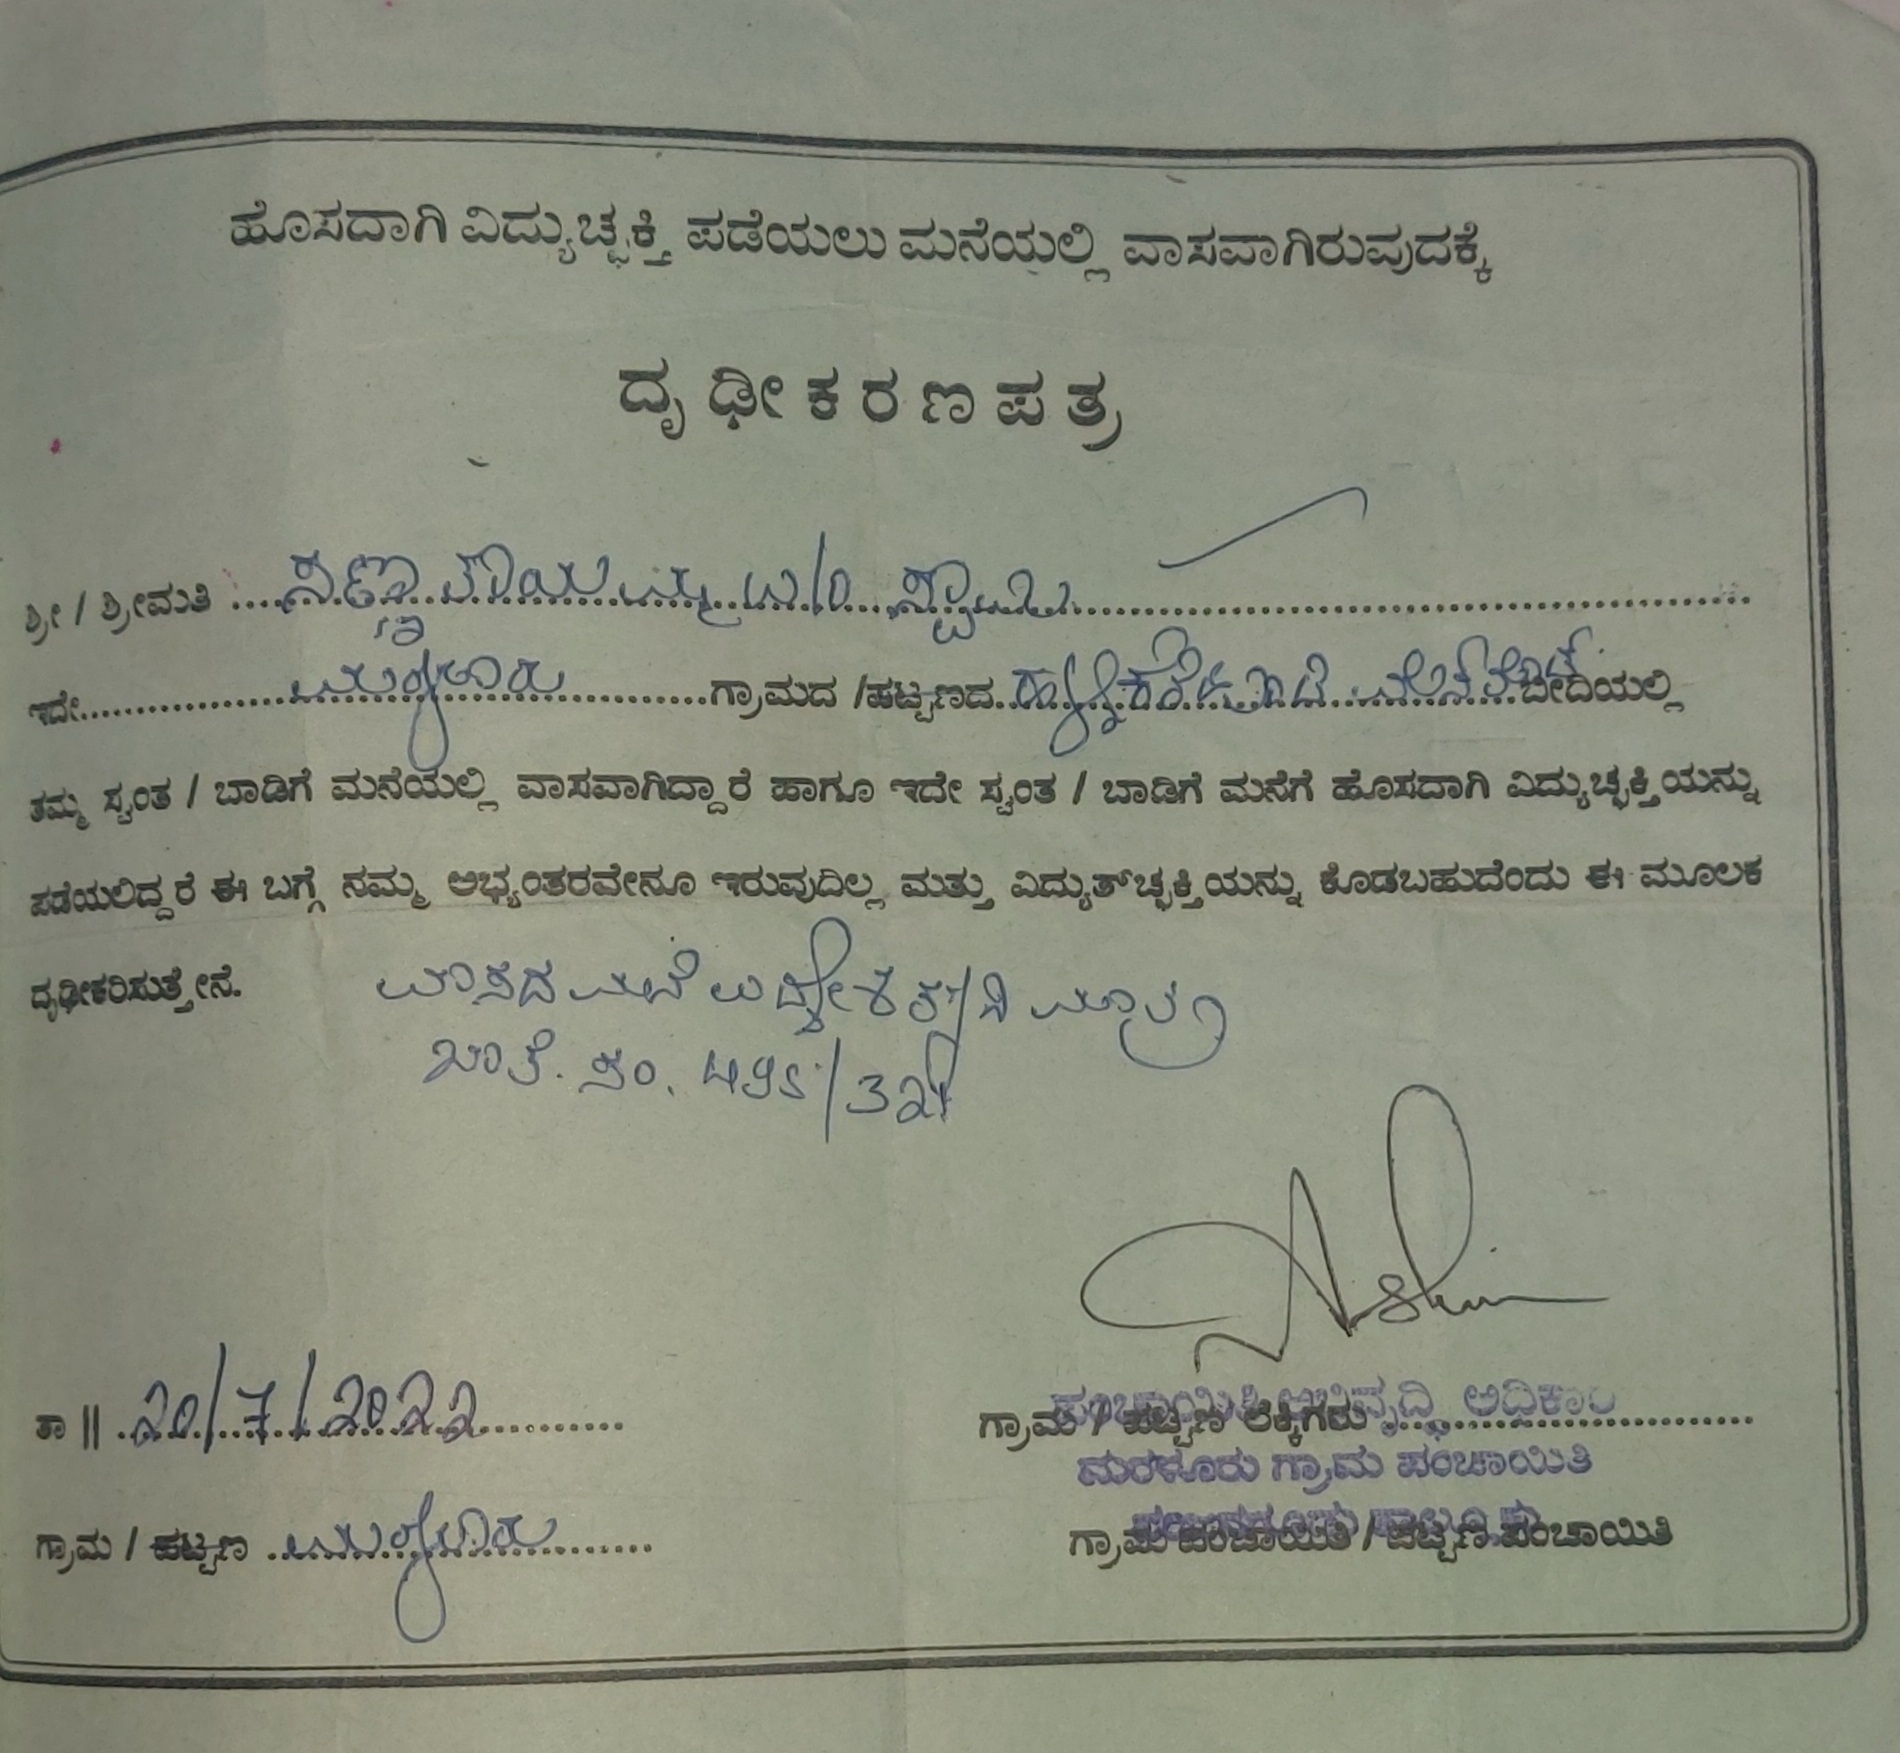 ಹೊಸದಾಗಿ ವಿದ್ಯುಚ್ಛಕ್ತಿ ಪಡೆಯಲು ಮನೆಯಲ್ಲಿ ವಾಸವಾಗಿರುವುದಕ್ಕೆ
ದೃಢೀಕರಣಪತ್ರ
ಶ್ರೀ / ಶ್ರೀಮತಿ ....ಸಣ್ಣ ತಾಯಮ್ಮ
ಇದೇ.................ಮರಳೂರು............ಗ್ರಾಮದ /ಪಟ್ಟಣದ.. ಬೀದಿಯಲ್ಲಿ
ತಮ್ಮ ಸ್ವಂತ / ಬಾಡಿಗೆ ಮನೆಯಲ್ಲಿ ವಾಸವಾಗಿದ್ದಾರೆ ಹಾಗೂ ಇದೇ ಸ್ವಂತ / ಬಾಡಿಗೆ ಮನೆಗೆ ಹೊಸದಾಗಿ ವಿದ್ಯುಚ್ಛಕ್ತಿಯನ್ನು
ಪಡೆಯಲಿದ್ದರೆ ಈ ಬಗ್ಗೆ ನಮ್ಮ ಅಭ್ಯಂತರವೇನೂ ಇರುವುದಿಲ್ಲ ಮತ್ತು ವಿದ್ಯುತ್‌ಚ್ಛಕ್ತಿಯನ್ನು ಕೊಡಬಹುದೆಂದು ಈ ಮೂಲಕ
ದೃಢೀಕರಿಸುತ್ತೇನೆ. ವಾಸದ ಮನೆ ಉದ್ದೇಶಕ್ಕಾಗಿ ಮಾತ್ರ
ಖಾತೆ. ಸಂ. 495/324
ತಾ || .20/7/2022..........
ಗ್ರಾಮ / ಪಟ್ಟಣ ಲೆಕ್ಕಿಗರು
ಪಂಚಾಯಿತಿ ಅಭಿವೃದ್ಧಿ ಅಧಿಕಾರಿ
ಮರಳೂರು ಗ್ರಾಮ ಪಂಚಾಯಿತಿ
ಗ್ರಾಮ / ಪಟ್ಟಣ ..ಮರಳೂರು........
ಗ್ರಾಮ ಪಂಚಾಯಿತಿ / ಪಟ್ಟಣ ಪಂಚಾಯಿತಿ